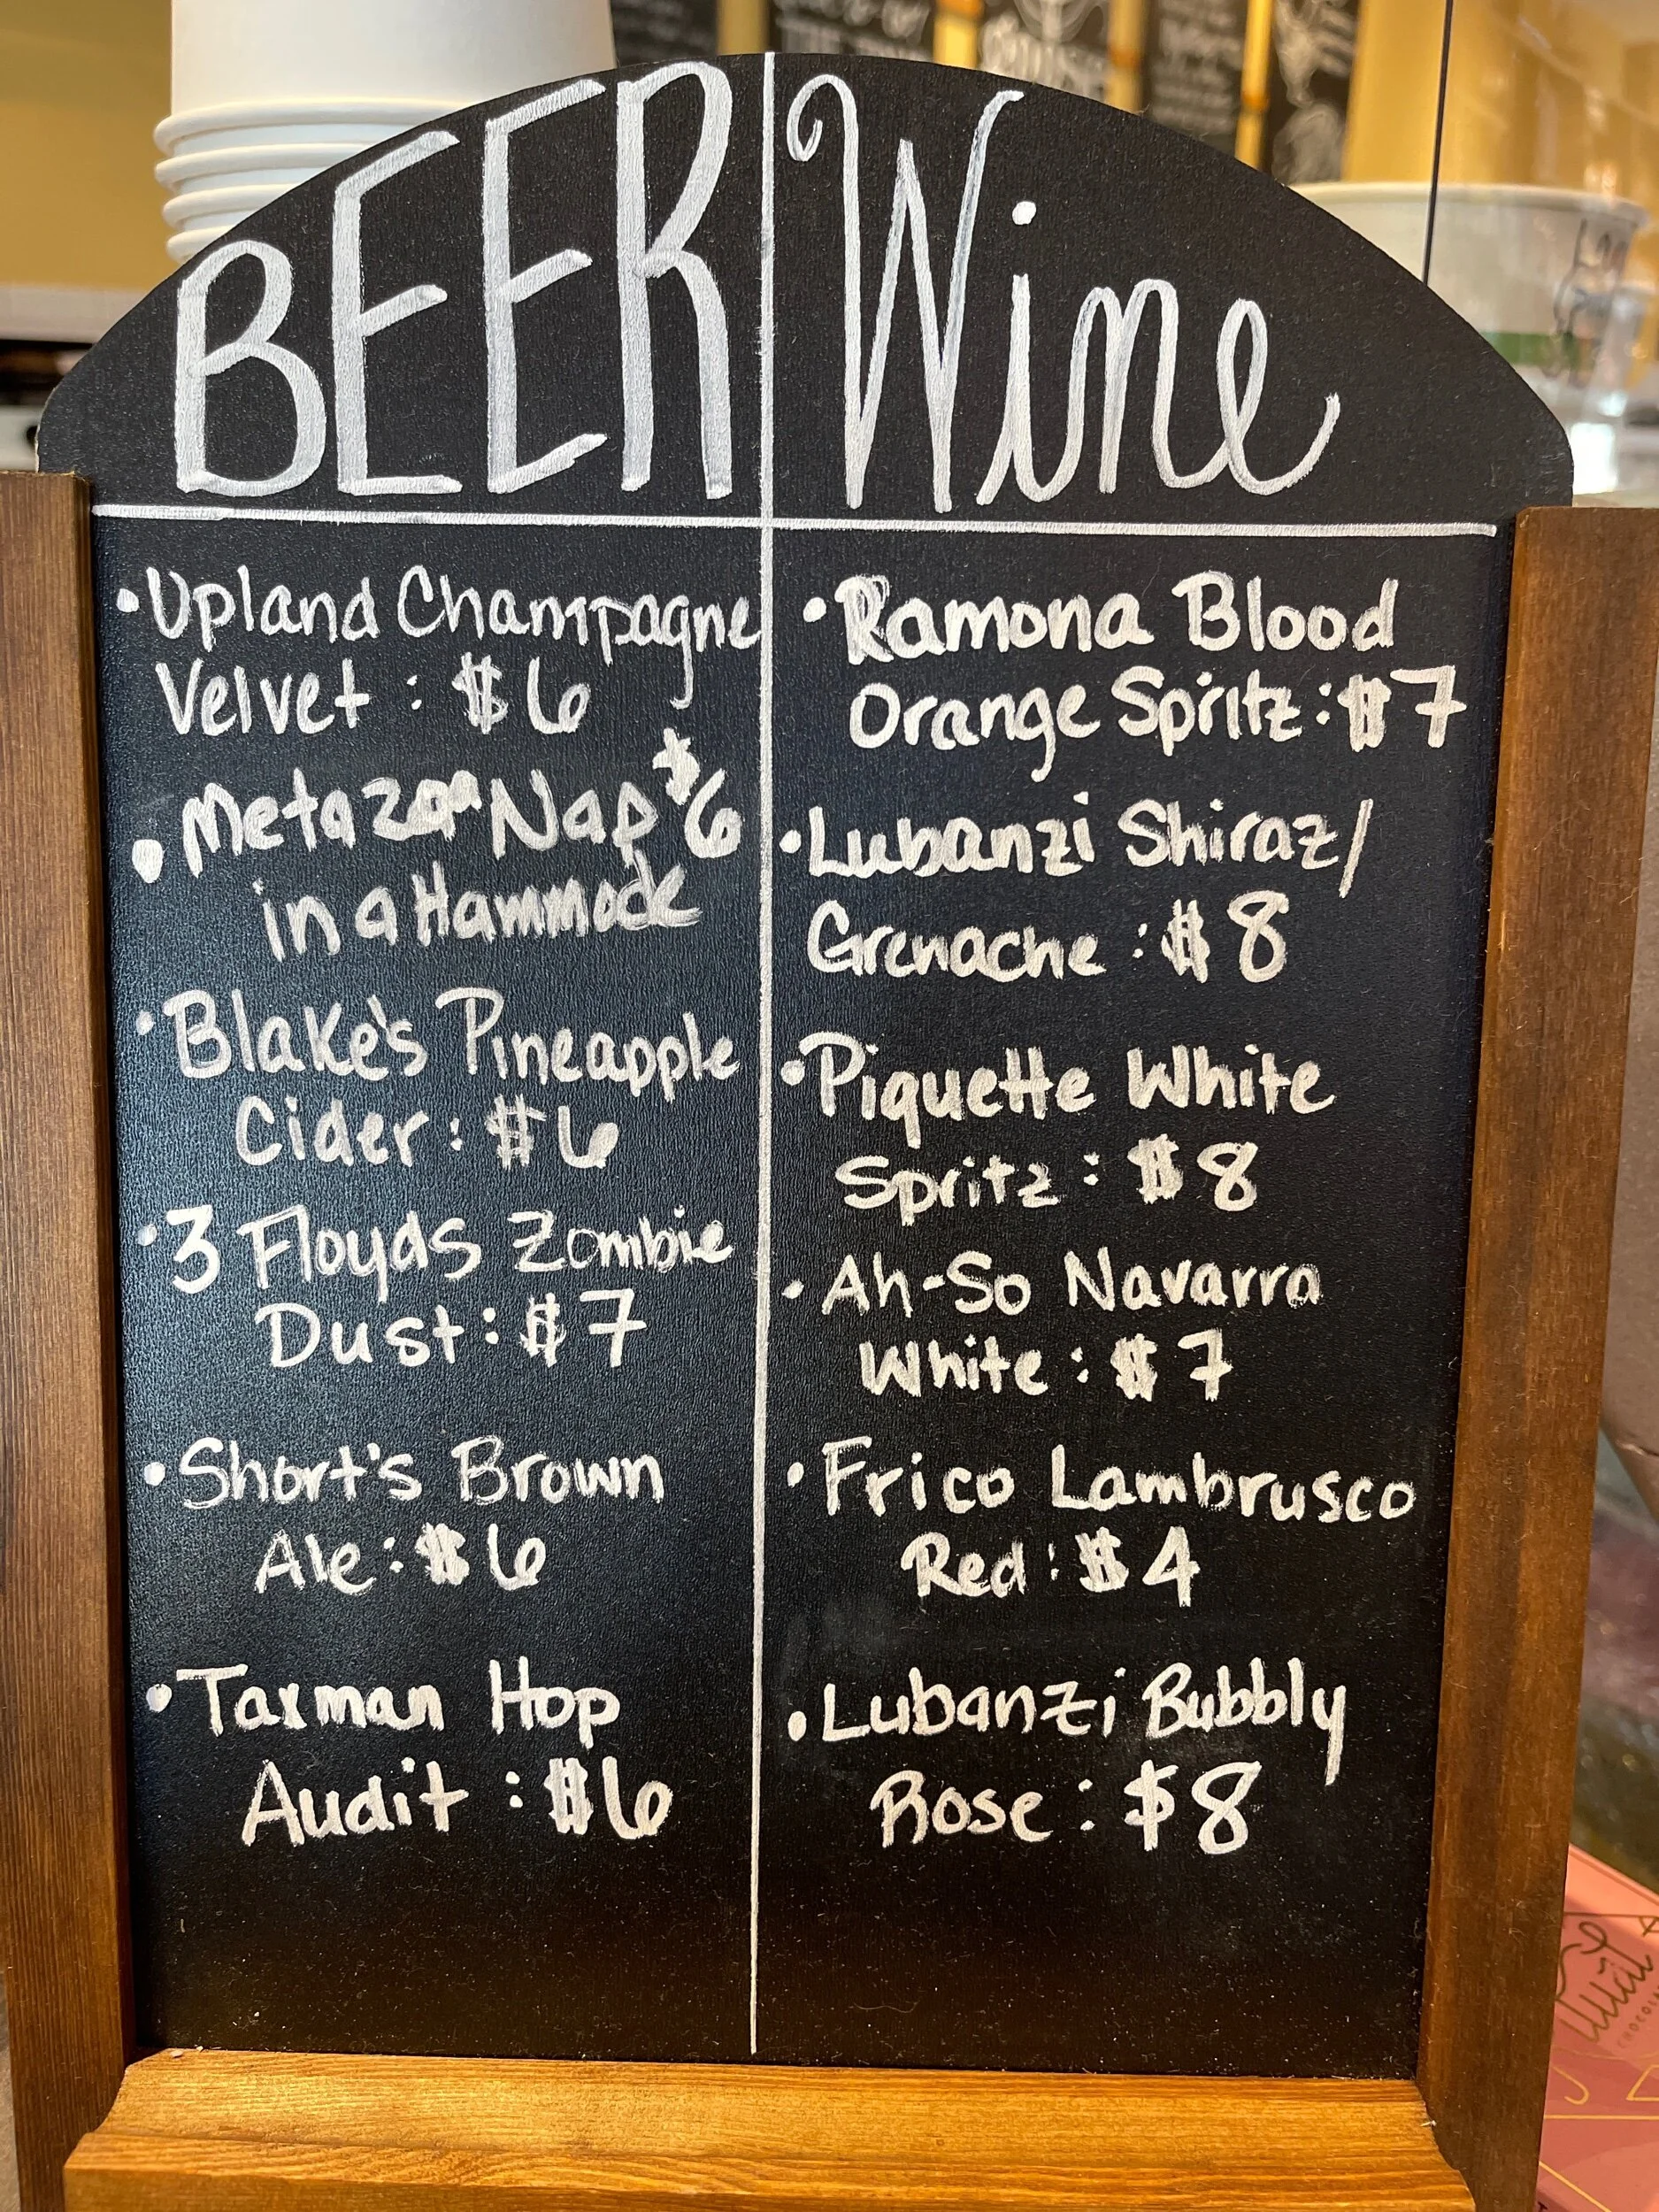 BEER
Wine
•Upland Champagne
Velvet : $6
•Metazoa Nap $6
in a Hammock
•Blake's Pineapple
Cider: $6
•3 Floyds Zombie
Dust: $7
•Short's Brown
Ale: $6
•Taxman Hop
Audit : $6
•Ramona Blood
Orange Spritz: $7
•Lubanzi Shiraz/
Grenache : $8
•Piquette White
Spritz : $8
•Ah-So Navarra
White : $7
•Frico Lambrusco
Red : $4
•Lubanzi Bubbly
Rose : $8